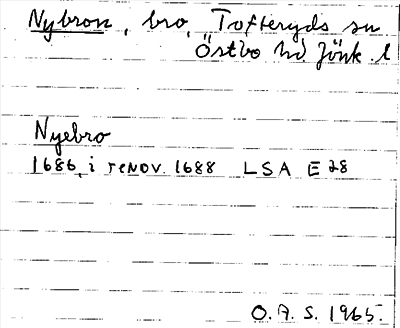 Nybron, bro, Tofteryds sn
Östbo hd Jönk. l
Nyebro
1686, i renov. 1688 LSA E 28
O.A.S. 1965.